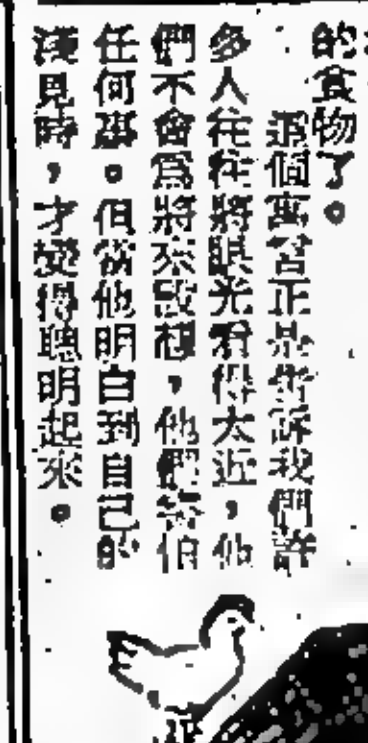 的食物了。
這個寓言正是告訴我們許
多人往往將眼光看得太近，他
們不會為將來設想，他們害怕
任何事。但當他明白到自己的
淺見時，才變得聰明起來。